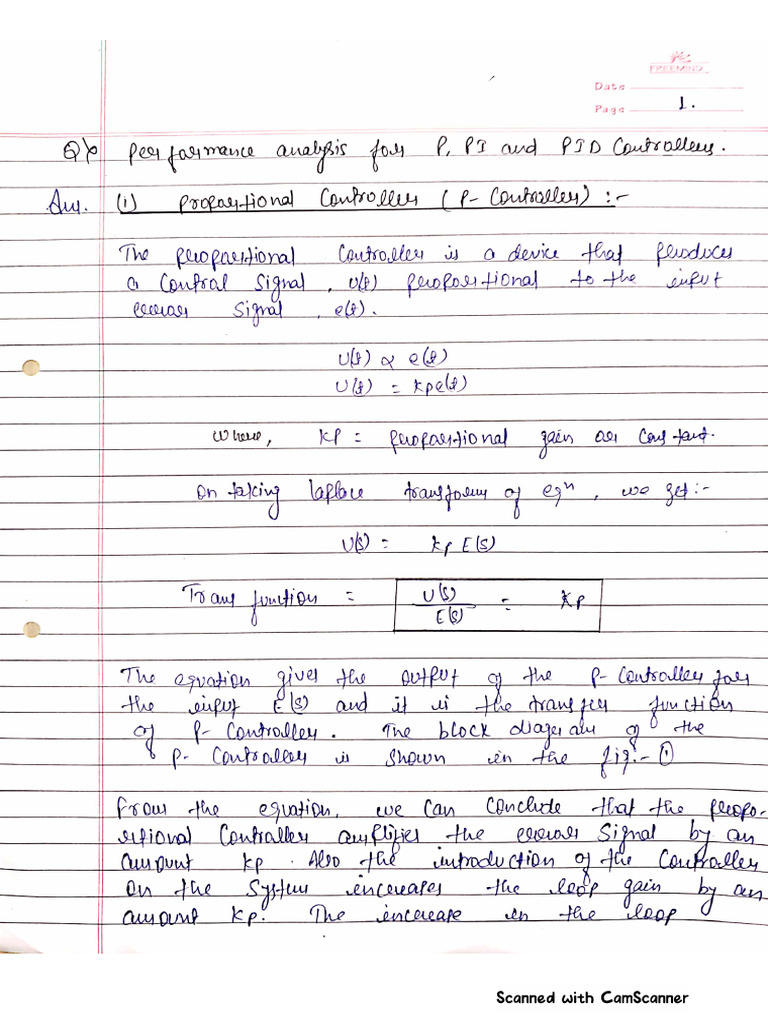 FREEMIND
Date
Page 1.
Q) Performance analysis for P, PI and PID Controllers.
Ans. (1) Proportional Controller (P-Controller) :-
The proportional Controller is a device that produces
a Control Signal, U(t) proportional to the input
error Signal, e(t).
U(t) ∝ e(t)
U(t) = Kpe(t)
where, Kp = proportional gain or constant.
On taking laplace transform of eqn, we get:-
U(s) = Kp E(s)
Trans function = U(s)/E(s) = Kp
The equation gives the output of the P-Controller for
the input E(s) and it is the transfer function
of P-Controller. The block diagram of the
P-Controller is shown in the fig:- (1)
From the equation, we can conclude that the propo-
rtional Controller amplifies the error Signal by an
amount Kp. Also the introduction of the Controller
on the System increases the loop gain by an
amount Kp. The increase in the loop
Scanned with CamScanner